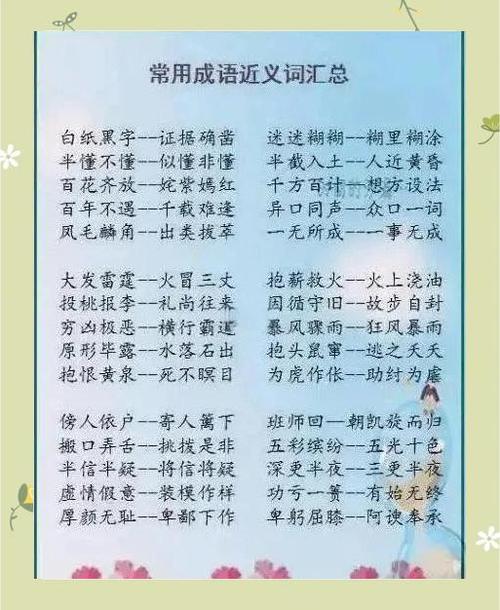 常用成语近义词汇总
白纸黑字--证据确凿 迷迷糊糊--糊里糊涂
半懂不懂--似懂非懂 半截入土--人近黄昏
百花齐放--姹紫嫣红 千方百计--想方设法
百年不遇--千载难逢 异口同声--众口一词
凤毛麟角--出类拔萃 一无所成--一事无成
大发雷霆--火冒三丈 抱薪救火--火上浇油
投桃报李--礼尚往来 因循守旧--故步自封
穷凶极恶--横行霸道 暴风骤雨--狂风暴雨
原形毕露--水落石出 抱头鼠窜--逃之夭夭
抱恨黄泉--死不瞑目 为虎作伥--助纣为虐
傍人依户--寄人篱下 班师回--朝凯旋而归
搬口弄舌--挑拨是非 五彩缤纷--五光十色
半信半疑--将信将疑 深更半夜--三更半夜
虚情假意--装模作样 功亏一篑--有始无终
厚颜无耻--卑鄙下作 卑躬屈膝--阿谀奉承